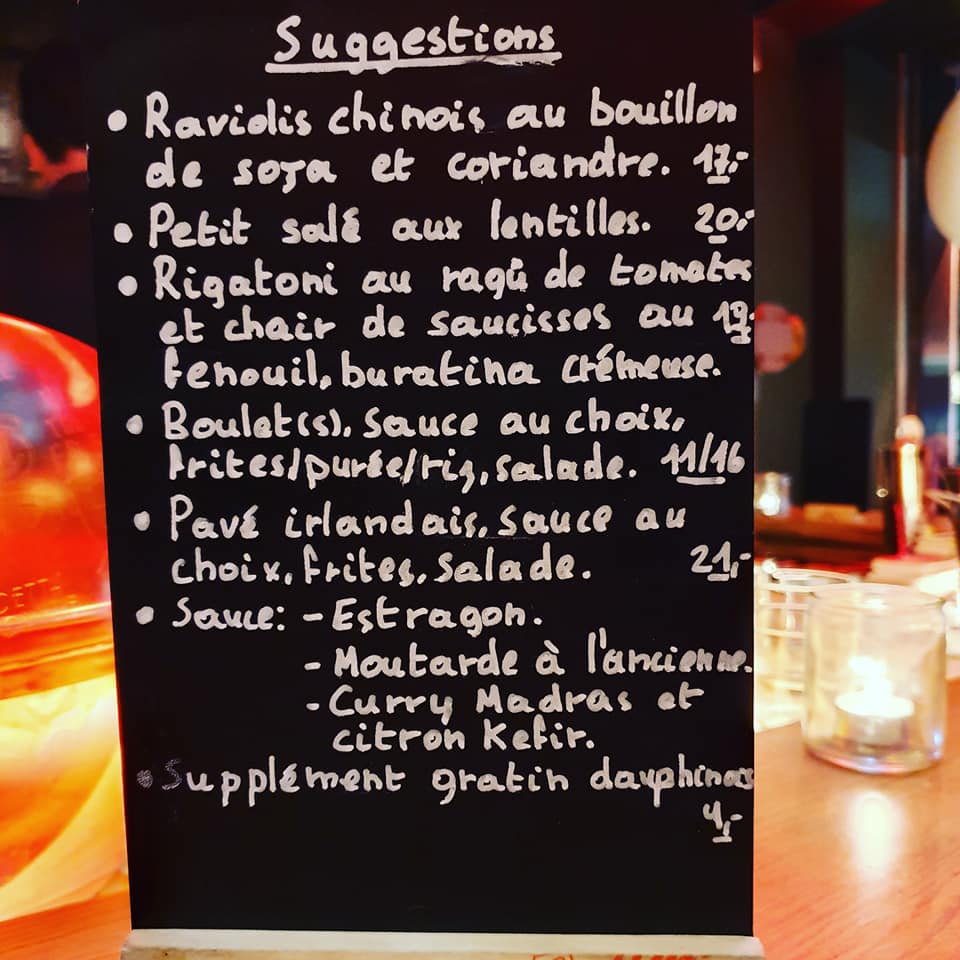 Suggestions
• Raviolis chinois au bouillon
de soja et coriandre. 17,-
• Petit salé aux lentilles. 20,-
• Rigatoni au ragû de tomates
et chair de saucisses au 19,-
fenouil, buratina crémeuse.
• Boulet(s), sauce au choix,
frites/purée/riz, salade. 11/16
• Pavé irlandais, sauce au
choix, frites, salade. 21,-
• Sauce: - Estragon.
- Moutarde à l'ancienne.
- Curry Madras et
citron Kefir.
• Supplément gratin dauphinois
4,-